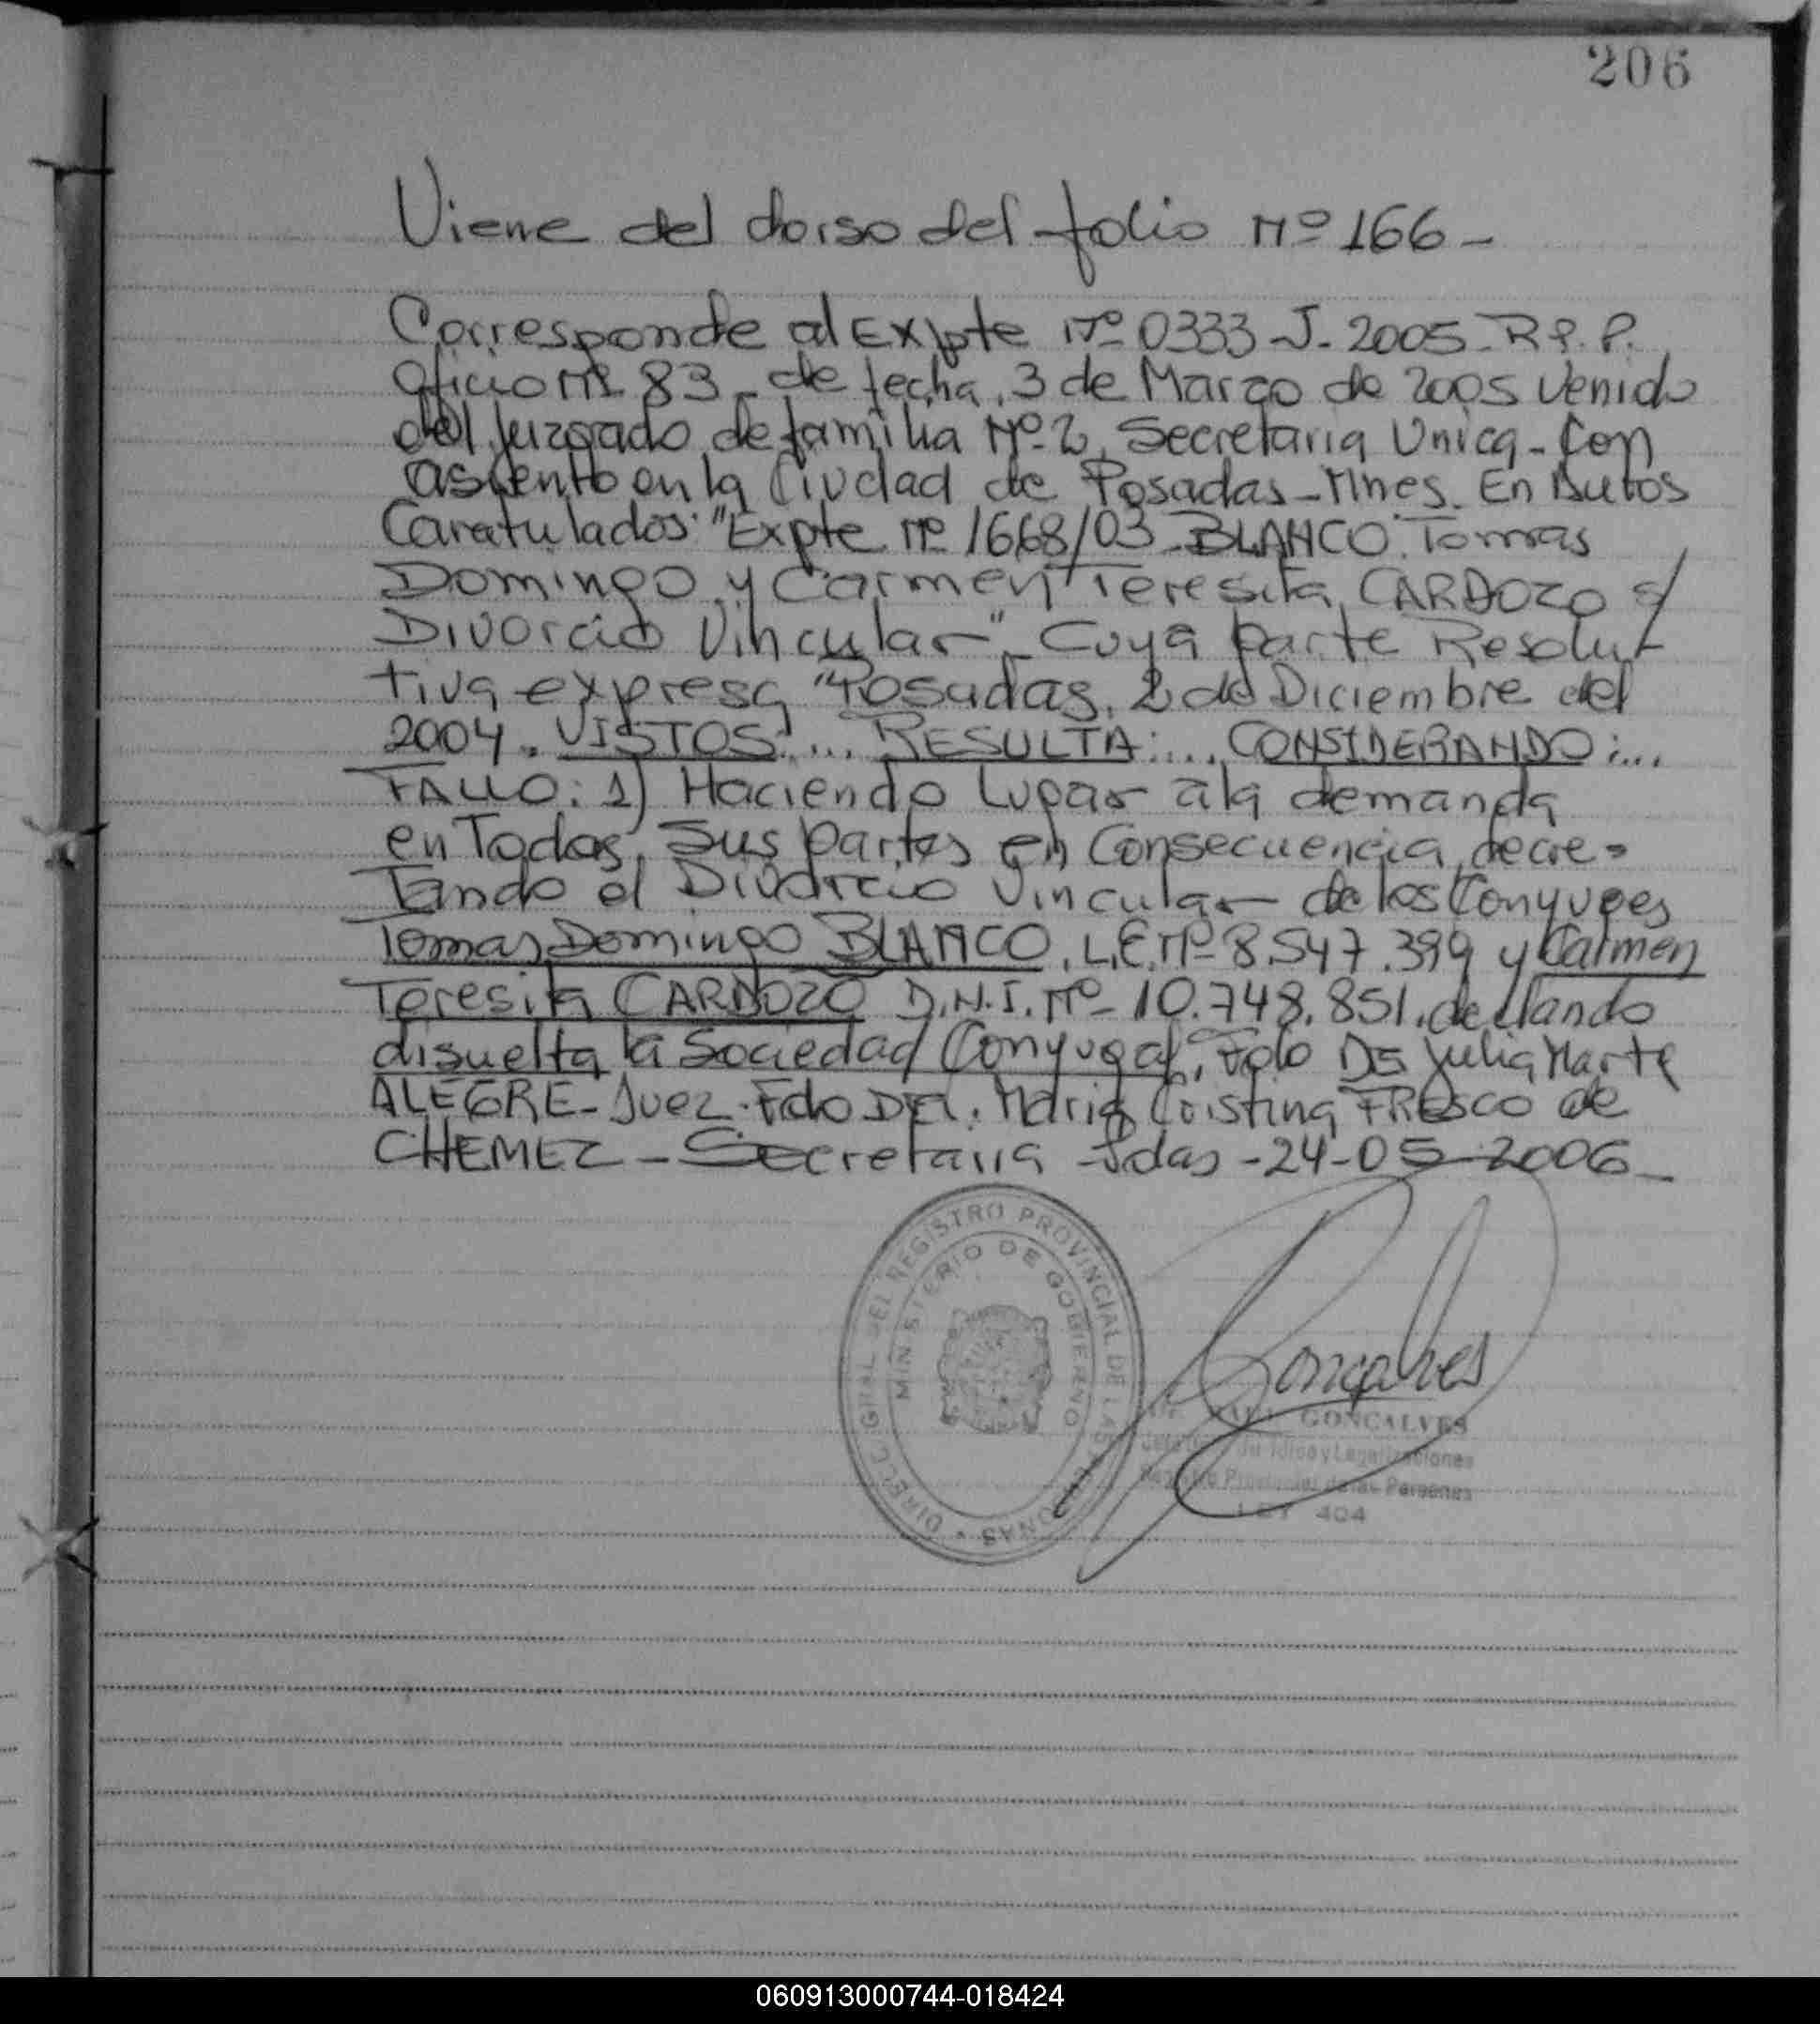 206
Viene del dorso del folio Nº 166-
Corresponde al Expte Nº 0333-J-2005-R.P.P.
Oficio Nº 83 - de fecha, 3 de Marzo de 2005 venido
del Juzgado de familia Nº 2, Secretaria Unica - Con
asiento en la Ciudad de Posadas - Mnes. En Autos
Caratulados: "Expte Nº 1668/03 - BLANCO Tomas
Domingo y Carmen Teresita CARDOZO s/
Divorcio Vincular" - Cuya parte Resolu-
tiva expresa "Posadas, 2 de Diciembre del
2004. VISTOS:... RESULTA:... CONSIDERANDO:...
FALLO: 1) Haciendo Lugar a la demanda
en Todas, Sus partes en Consecuencia, decre-
Tando el Divorcio Vincular de los Conyuges
Tomas Domingo BLANCO, L.E. Nº 8.547.399 y Carmen
Teresita CARDOZO D.N.I. Nº 10.748.851, decllando
disuelta la Sociedad Conyugal, Fdo Julia Marta
ALEGRE - Juez. Fdo Dra. Maria Cristina FRESCO de
CHEMEZ - Secretaria - Pdas - 24-05-2006 -
DIRECC. GRAL DEL REGISTRO PROVINCIAL DE LAS PERSONAS
MINISTERIO DE GOBIERNO
Goncalves
GONCALVES
y Legalizaciones
Registro Provincial de las Personas
LEY 404
060913000744-018424